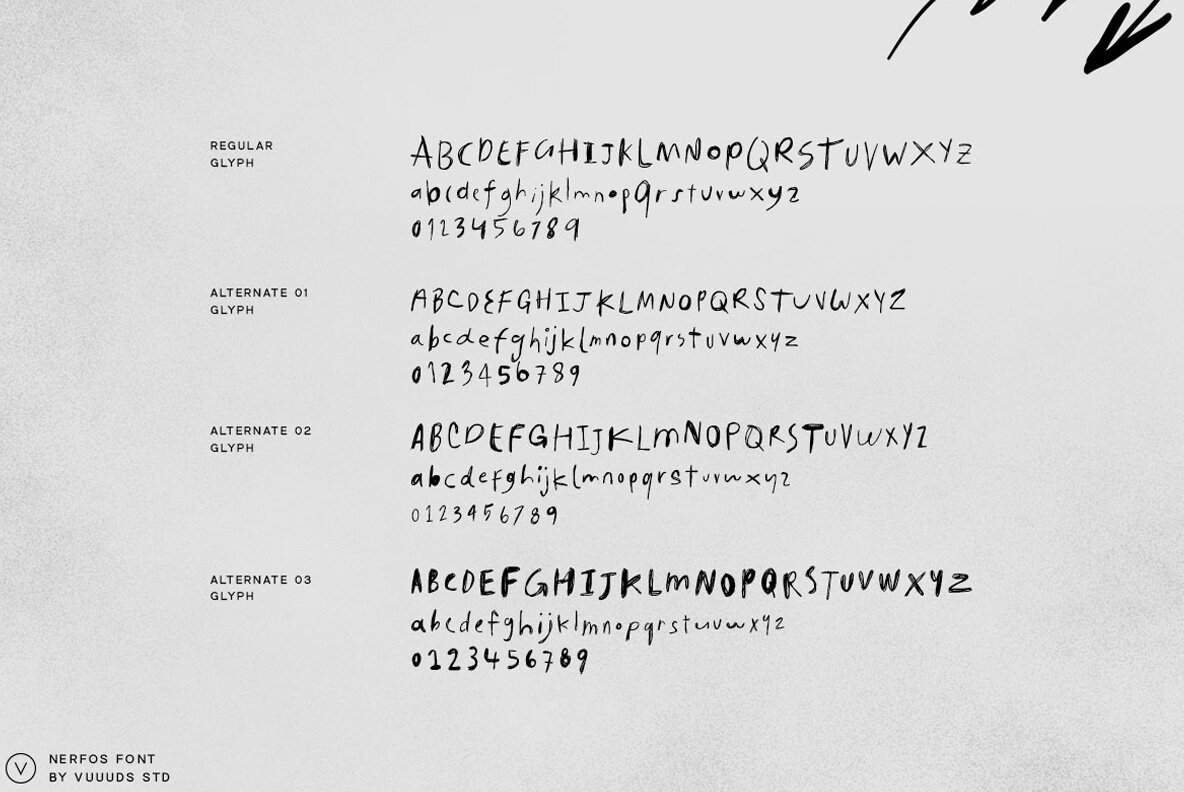 REGULAR
GLYPH
ABCDEFGHIJKLMNOPQRSTUVWXYZ
abcdefghijklmnopqrstuvwxyz
0123456789
ALTERNATE 01
GLYPH
ABCDEFGHIJKLMNOPQRSTUVWXYZ
abcdefghijklmnopqrstuvwxyz
0123456789
ALTERNATE 02
GLYPH
ABCDEFGHIJKLMNOPQRSTUVWXYZ
abcdefghijklmnopqrstuvwxyz
0123456789
ALTERNATE 03
GLYPH
ABCDEFGHIJKLMNOPQRSTUVWXYZ
abcdefghijklmnopqrstuvwxyz
0123456789
V
NERFOS FONT
BY VUUUDS STD